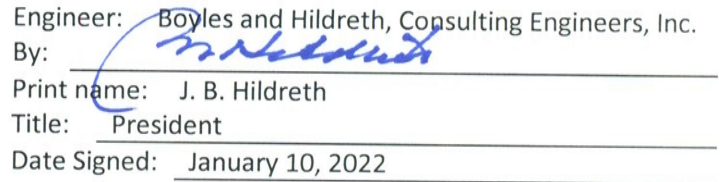 Engineer: Boyles and Hildreth, Consulting Engineers, Inc.
By:
Print name: J. B. Hildreth
Title: President
Date Signed: January 10, 2022